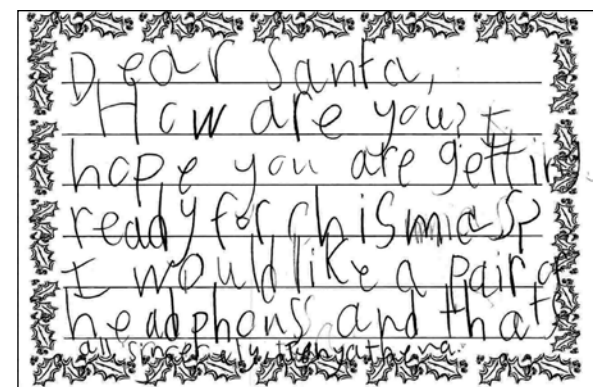 Dear Santa,
How are you? I
hope you are gettin
ready for chismas?
I would like a pair of
headphons and that
all sincerely,